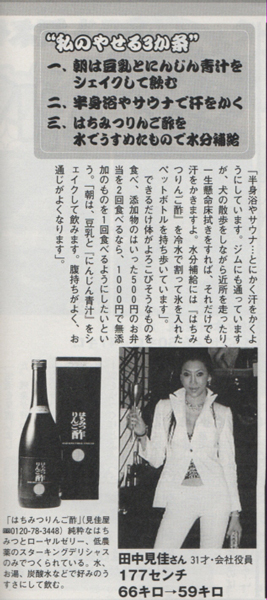 “私のやせる3か条”
一、朝は豆乳とにんじん青汁を
シェイクして飲む
二、半身浴やサウナで汗をかく
三、はちみつりんご酢を
水でうすめたもので水分補給
「半身浴やサウナ…とにかく汗をかくよ
うにしています。ジムにも通っています
が、犬の散歩をしながら近所を走ったり
一生懸命床拭きをすれば、それだけでも
汗をかきますよ。水分補給には『はちみ
つりんご酢』を冷水で割って氷を入れた
ペットボトルを持ち歩いています」。
できるだけ体がよろこびそうなものを
食べ、添加物のはいった500円のお弁
当を2回食べるなら、1000円で無添
加のものを1回食べるようにしたいとい
う。「朝は、豆乳と『にんじん青汁』をシ
ェイクして飲みます。腹持ちがよく、お
通じがよくなります」。
はちみつりんご酢
「はちみつりんご酢」(見佳屋
0120-78-3448) 純粋なはち
みつとローヤルゼリー、低農
薬のスターキングデリシャス
のみでつくられている。水、
お湯、炭酸水などで好みのう
すさにして飲む。
田中見佳さん 31才・会社役員
177センチ
66キロ→59キロ